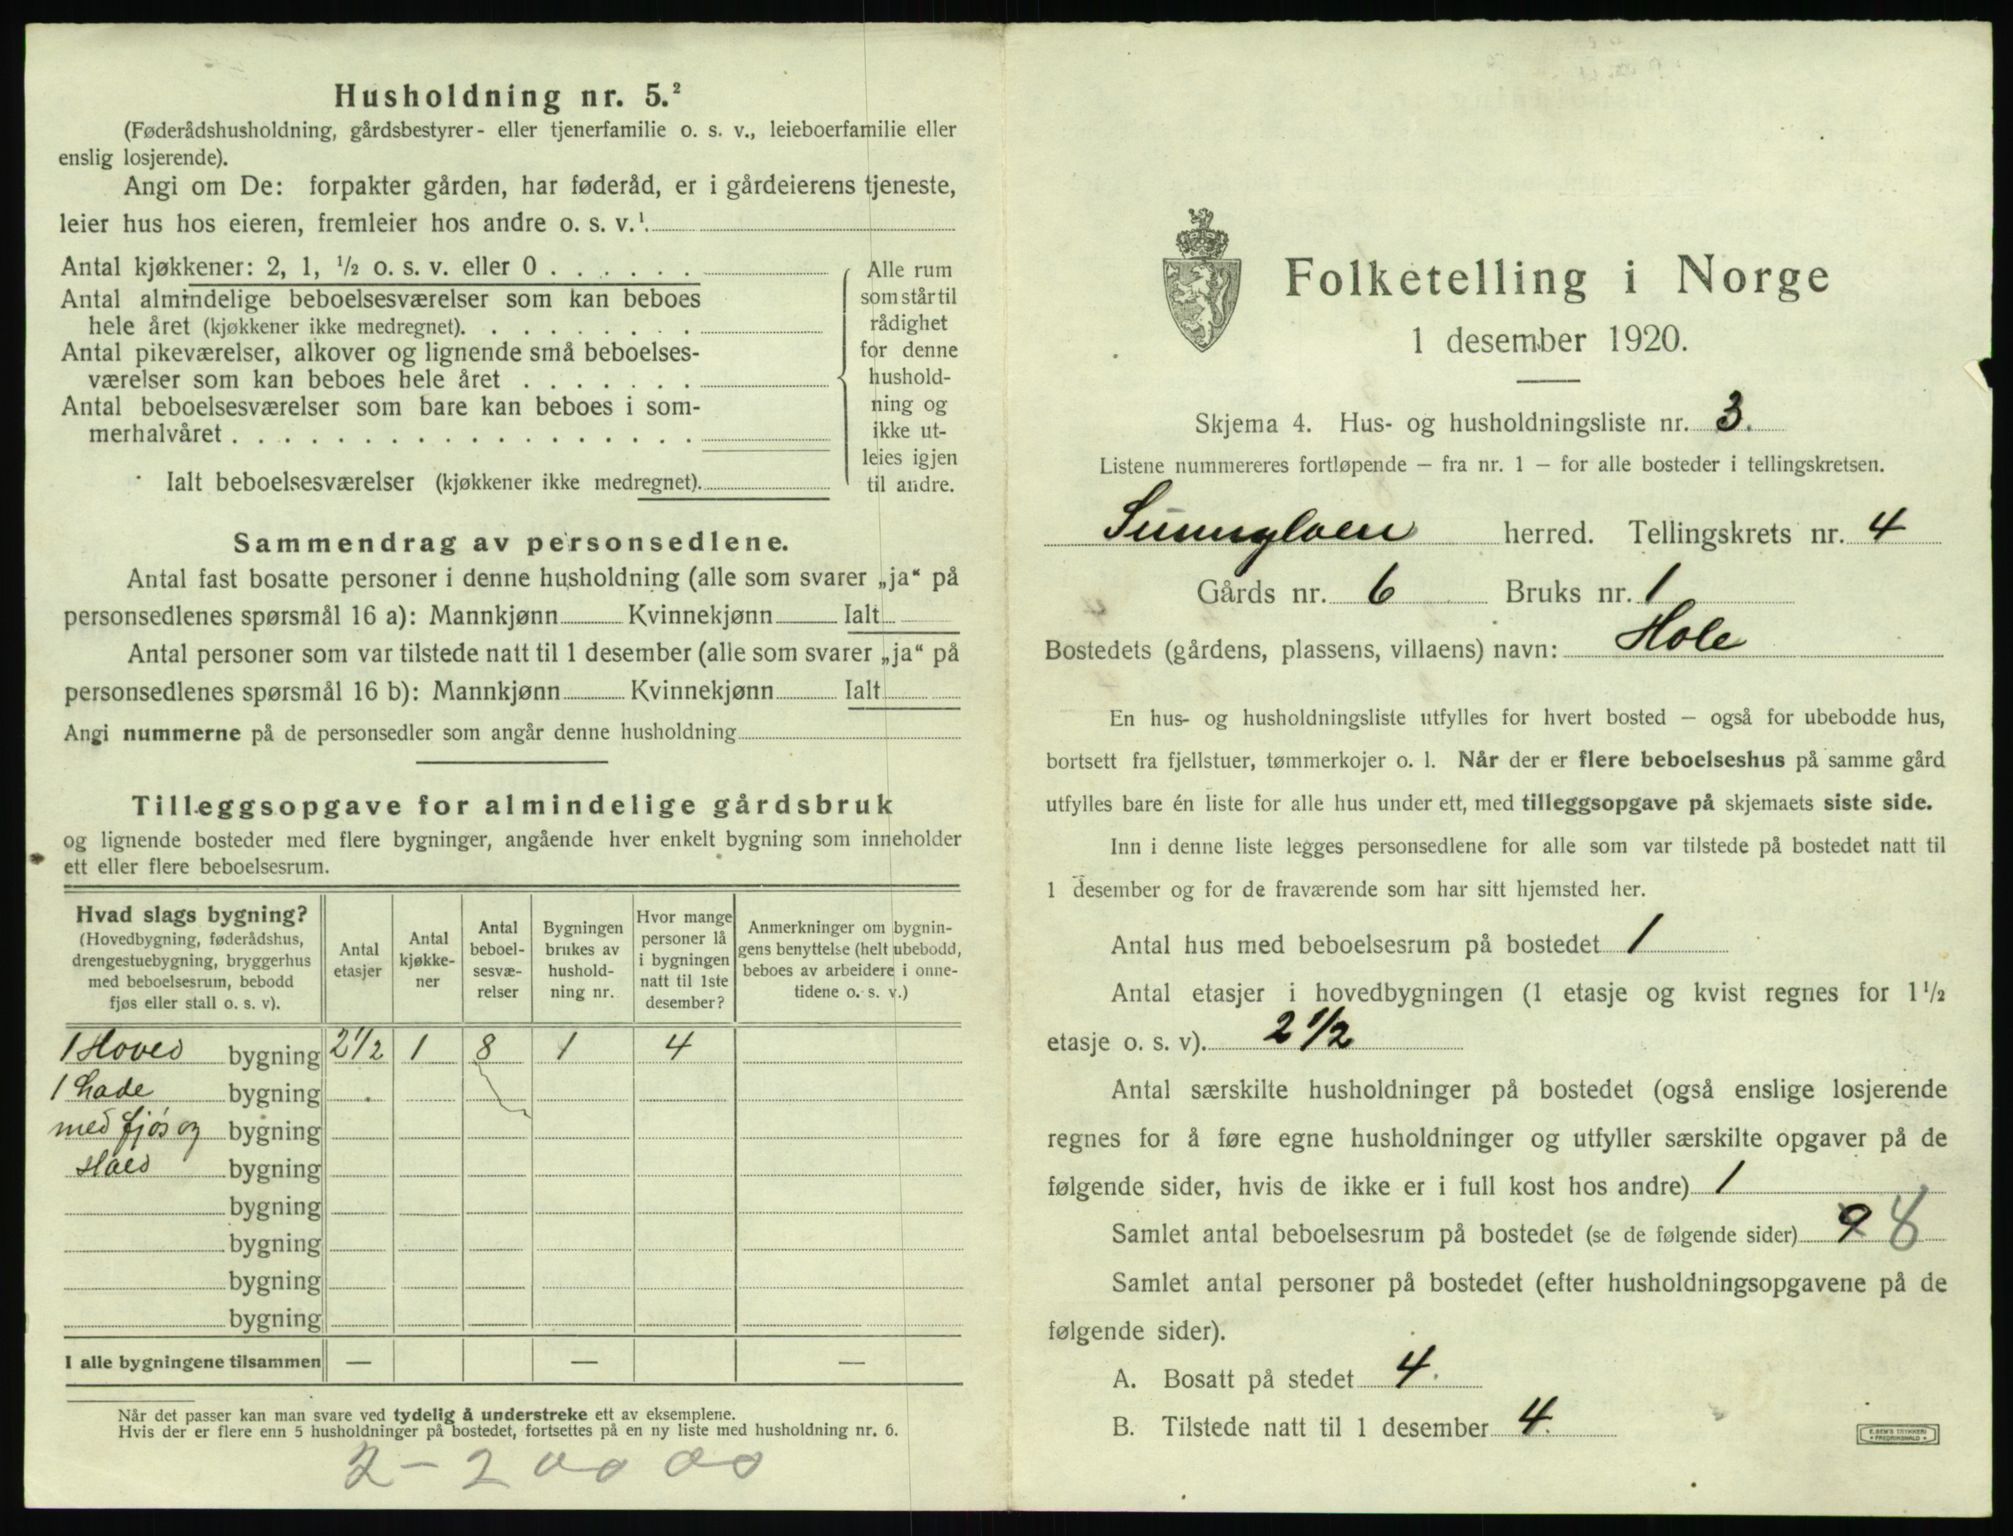 Husholdning nr. 5.²
(Føderådshusholdning, gårdsbestyrer- eller tjenerfamilie o. s. v., leieboerfamilie eller
enslig losjerende).
Angi om De: forpakter gården, har føderåd, er i gårdeierens tjeneste,
leier hus hos eieren, fremleier hos andre o. s. v.¹
Antal kjøkkener: 2, 1, ½ o. s. v. eller 0 . . . . . .
Antal almindelige beboelsesværelser som kan beboes
hele året (kjøkkener ikke medregnet). . . . . . . . .
Antal pikeværelser, alkover og lignende små beboelses-
værelser som kan beboes hele året . . . . . . .
Antal beboelsesværelser som bare kan beboes i som-
merhalvåret . . . . . . . . . . . . . . . . . .
Ialt beboelsesværelser (kjøkkener ikke medregnet).
Alle rum
som står til
rådighet
for denne
hushold-
ning og
ikke ut-
leies igjen
til andre.
Sammendrag av personsedlene.
Antal fast bosatte personer i denne husholdning (alle som svarer „ja“ på
personsedlenes spørsmål 16 a): Mannkjønn Kvinnekjønn Ialt
Antal personer som var tilstede natt til 1 desember (alle som svarer „ja“ på
personsedlenes spørsmål 16 b): Mannkjønn Kvinnekjønn Ialt
Angi nummerne på de personsedler som angår denne husholdning
Tilleggsopgave for almindelige gårdsbruk
og lignende bosteder med flere bygninger, angående hver enkelt bygning som inneholder
ett eller flere beboelsesrum.
Hvad slags bygning?
(Hovedbygning, føderådshus,
drengestuebygning, bryggerhus
med beboelsesrum, bebodd
fjøs eller stall o. s. v).
Antal
etasjer
Antal
kjøkke-
ner
Antal
beboel-
sesvæ-
relser
Bygningen
brukes av
hushold-
ning nr.
Hvor mange
personer lå
i bygningen
natt til 1ste
desember?
Anmerkninger om bygnin-
gens benyttelse (helt ubebodd,
beboes av arbeidere i onne-
tidene o. s. v.)
1 Hoved bygning 2½ 1 8 1 4
1 Lade bygning
med fjøs og bygning
Stald bygning
bygning
bygning
bygning
bygning
I alle bygningene tilsammen — — —
Når det passer kan man svare ved tydelig å understreke ett av eksemplene.
Hvis der er flere enn 5 husholdninger på bostedet, fortsettes på en ny liste med husholdning nr. 6.
2 - 2 00 00
Folketelling i Norge
1 desember 1920.
Skjema 4. Hus- og husholdningsliste nr. 3.
Listene nummereres fortløpende – fra nr. 1 – for alle bosteder i tellingskretsen.
Sunnylven herred. Tellingskrets nr. 4
Gårds nr. 6 Bruks nr. 1
Bostedets (gårdens, plassens, villaens) navn: Hole
En hus- og husholdningsliste utfylles for hvert bosted – også for ubebodde hus,
bortsett fra fjellstuer, tømmerkojer o. l. Når der er flere beboelseshus på samme gård
utfylles bare én liste for alle hus under ett, med tilleggsopgave på skjemaets siste side.
Inn i denne liste legges personsedlene for alle som var tilstede på bostedet natt til
1 desember og for de fraværende som har sitt hjemsted her.
Antal hus med beboelsesrum på bostedet 1
Antal etasjer i hovedbygningen (1 etasje og kvist regnes for 1½
etasje o. s. v). 2½
Antal særskilte husholdninger på bostedet (også enslige losjerende
regnes for å føre egne husholdninger og utfyller særskilte opgaver på de
følgende sider, hvis de ikke er i full kost hos andre) 1
Samlet antal beboelsesrum på bostedet (se de følgende sider) 9 8
Samlet antal personer på bostedet (efter husholdningsopgavene på de
følgende sider).
A. Bosatt på stedet 4.
B. Tilstede natt til 1 desember 4.
E. SEM'S TRYKKERI
FREDRIKSHALD